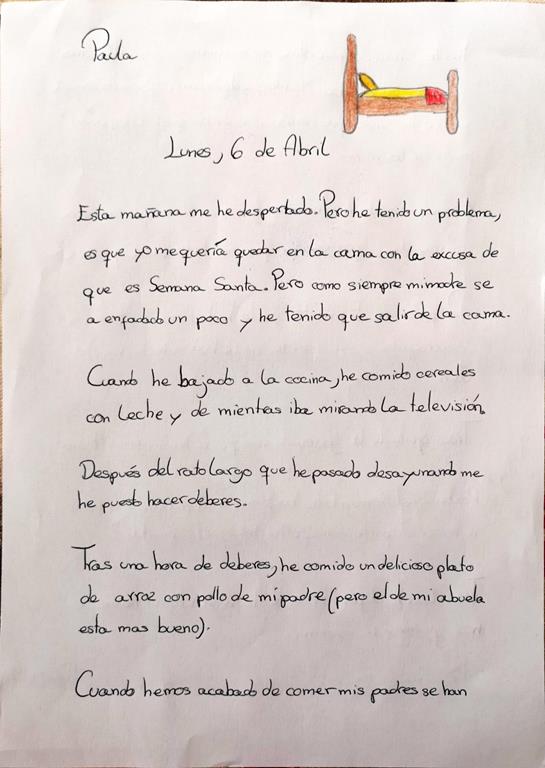 Paula
Lunes, 6 de Abril
Esta mañana me he despertado. Pero he tenido un problema,
es que yo me quería quedar en la cama con la excusa de
que es Semana Santa. Pero como siempre mi madre se
a enfadado un poco y he tenido que salir de la cama.
Cuando he bajado a la cocina, he comido cereales
con leche y de mientras iba mirando la televisión.
Después del rato largo que he pasado desayunando me
he puesto hacer deberes.
Tras una hora de deberes, he comido un delicioso plato
de arroz con pollo de mi padre (pero el de mi abuela
esta mas bueno).
Cuando hemos acabado de comer mis padres se han